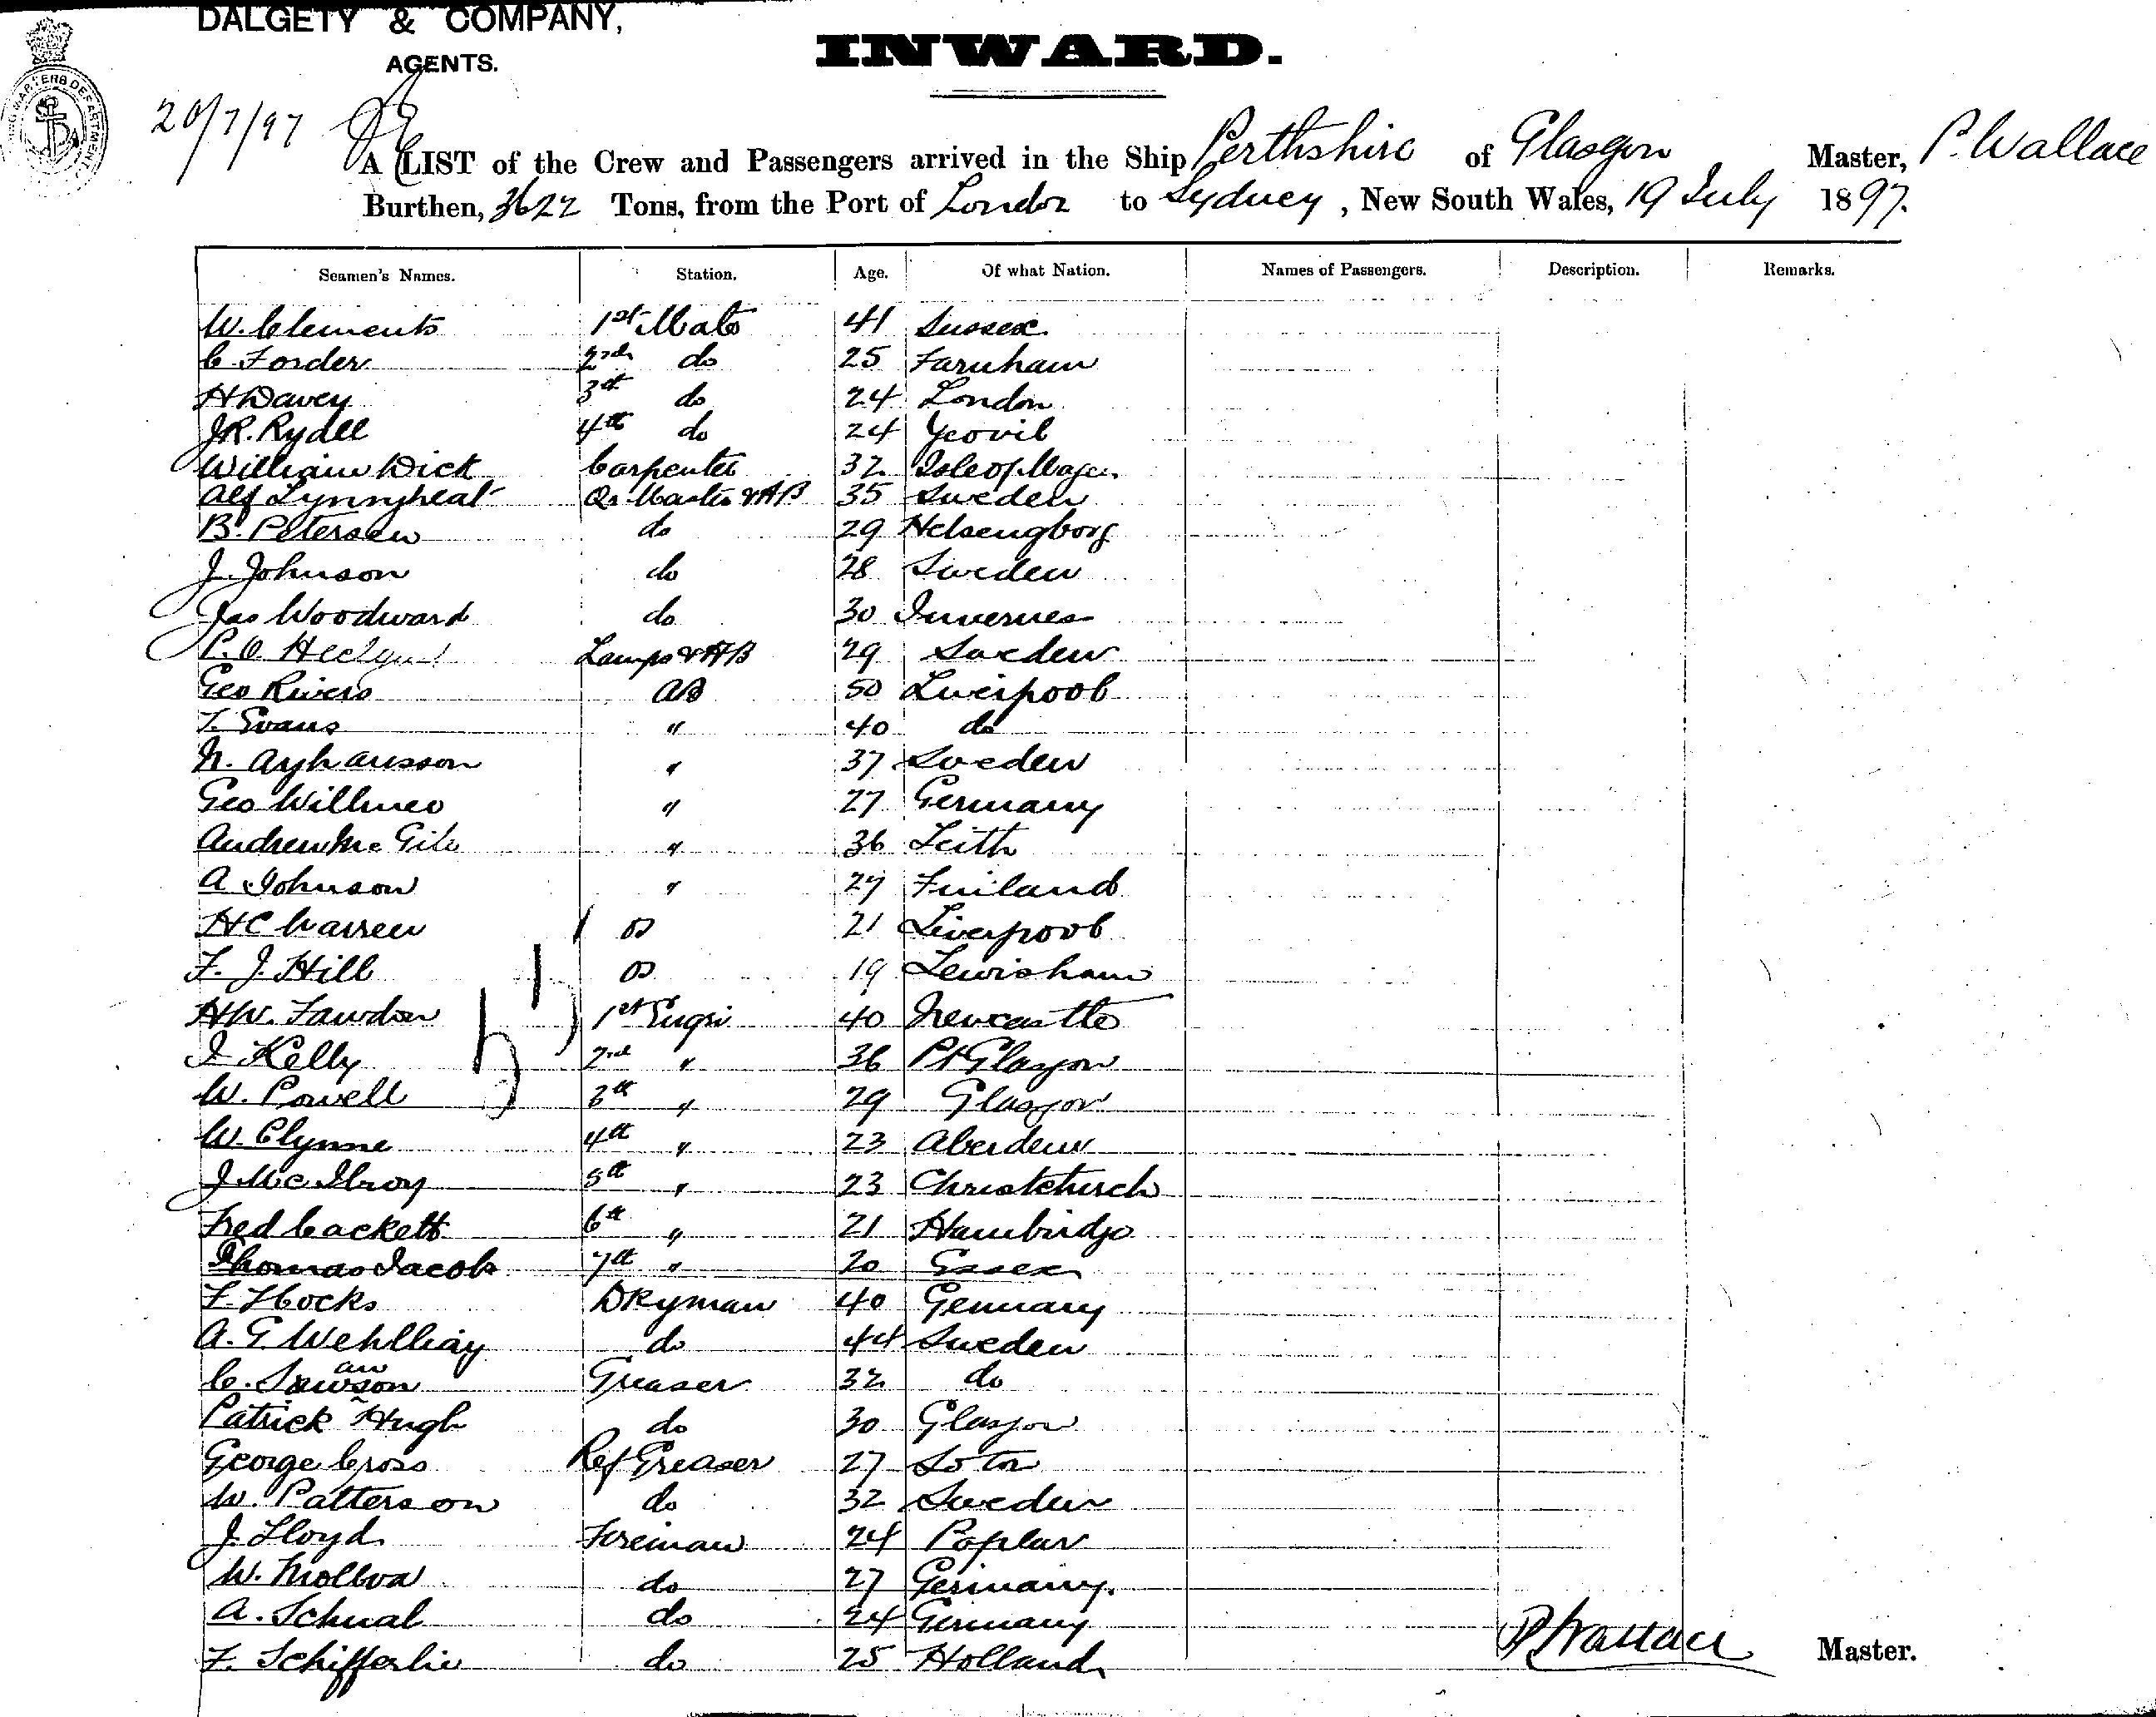 DALGETY & COMPANY,
AGENTS.
INWARD.
20/7/97
A LIST of the Crew and Passengers arrived in the Ship Perthshire of Glasgow Master, P. Wallace
Burthen, 3622 Tons, from the Port of London to Sydney, New South Wales, 19 July 1897.
Seamen's Names. Station. Age. Of what Nation. Names of Passengers. Description. Remarks.
W. Clements 1st Mate 41 Sussex
C. Forder 2nd do 25 Farnham
H Davey 3rd do 24 London
J.R. Rydell 4th do 24 Yeovil
William Dick Carpenter 32
Alf Qr. Master & AB 35 Sweden
B. Petersen do 29 Helsengborg
J. Johnson do 28 Sweden
Jas Woodward do 30 Invernes
P. O. Lamps & AB 29 Sweden
Geo Rivers AB 50 Liverpool
T. Evans " 40 do
N. " 37 Sweden
Geo " 27 Germany
Andrew Mc Gill " 36 Leith
A Johnson " 27 Finland
H C Warren OS 21 Liverpool
F. J. Hill OS 19 Lewisham
H W. Fawdon 1st Engr 40 Newcastle
J Kelly 2nd " 36 Pt Glasgow
W. Powell 3rd " 29 Glasgow
W. Clynne 4th " 23 Aberdeen
J. Mc Ilroy 5th " 23 Christchurch
Fred Cackett 6th " 21 Hambridge
Thomas Jacob 7th " 20 Essex
F. Hocks DKyman 40 Germany
A. G. do 44 Sweden
C. Greaser 32 do
Patrick Hugh do 30 Glasgow
George Cross Ref Greaser 27
W. Patterson do 32 Sweden
J. Lloyd Fireman 24 Poplar
W. do 27 Germany.
A. Schual do 24 Germany
F. Schifferlie do 25 Holland
P Wallace Master.